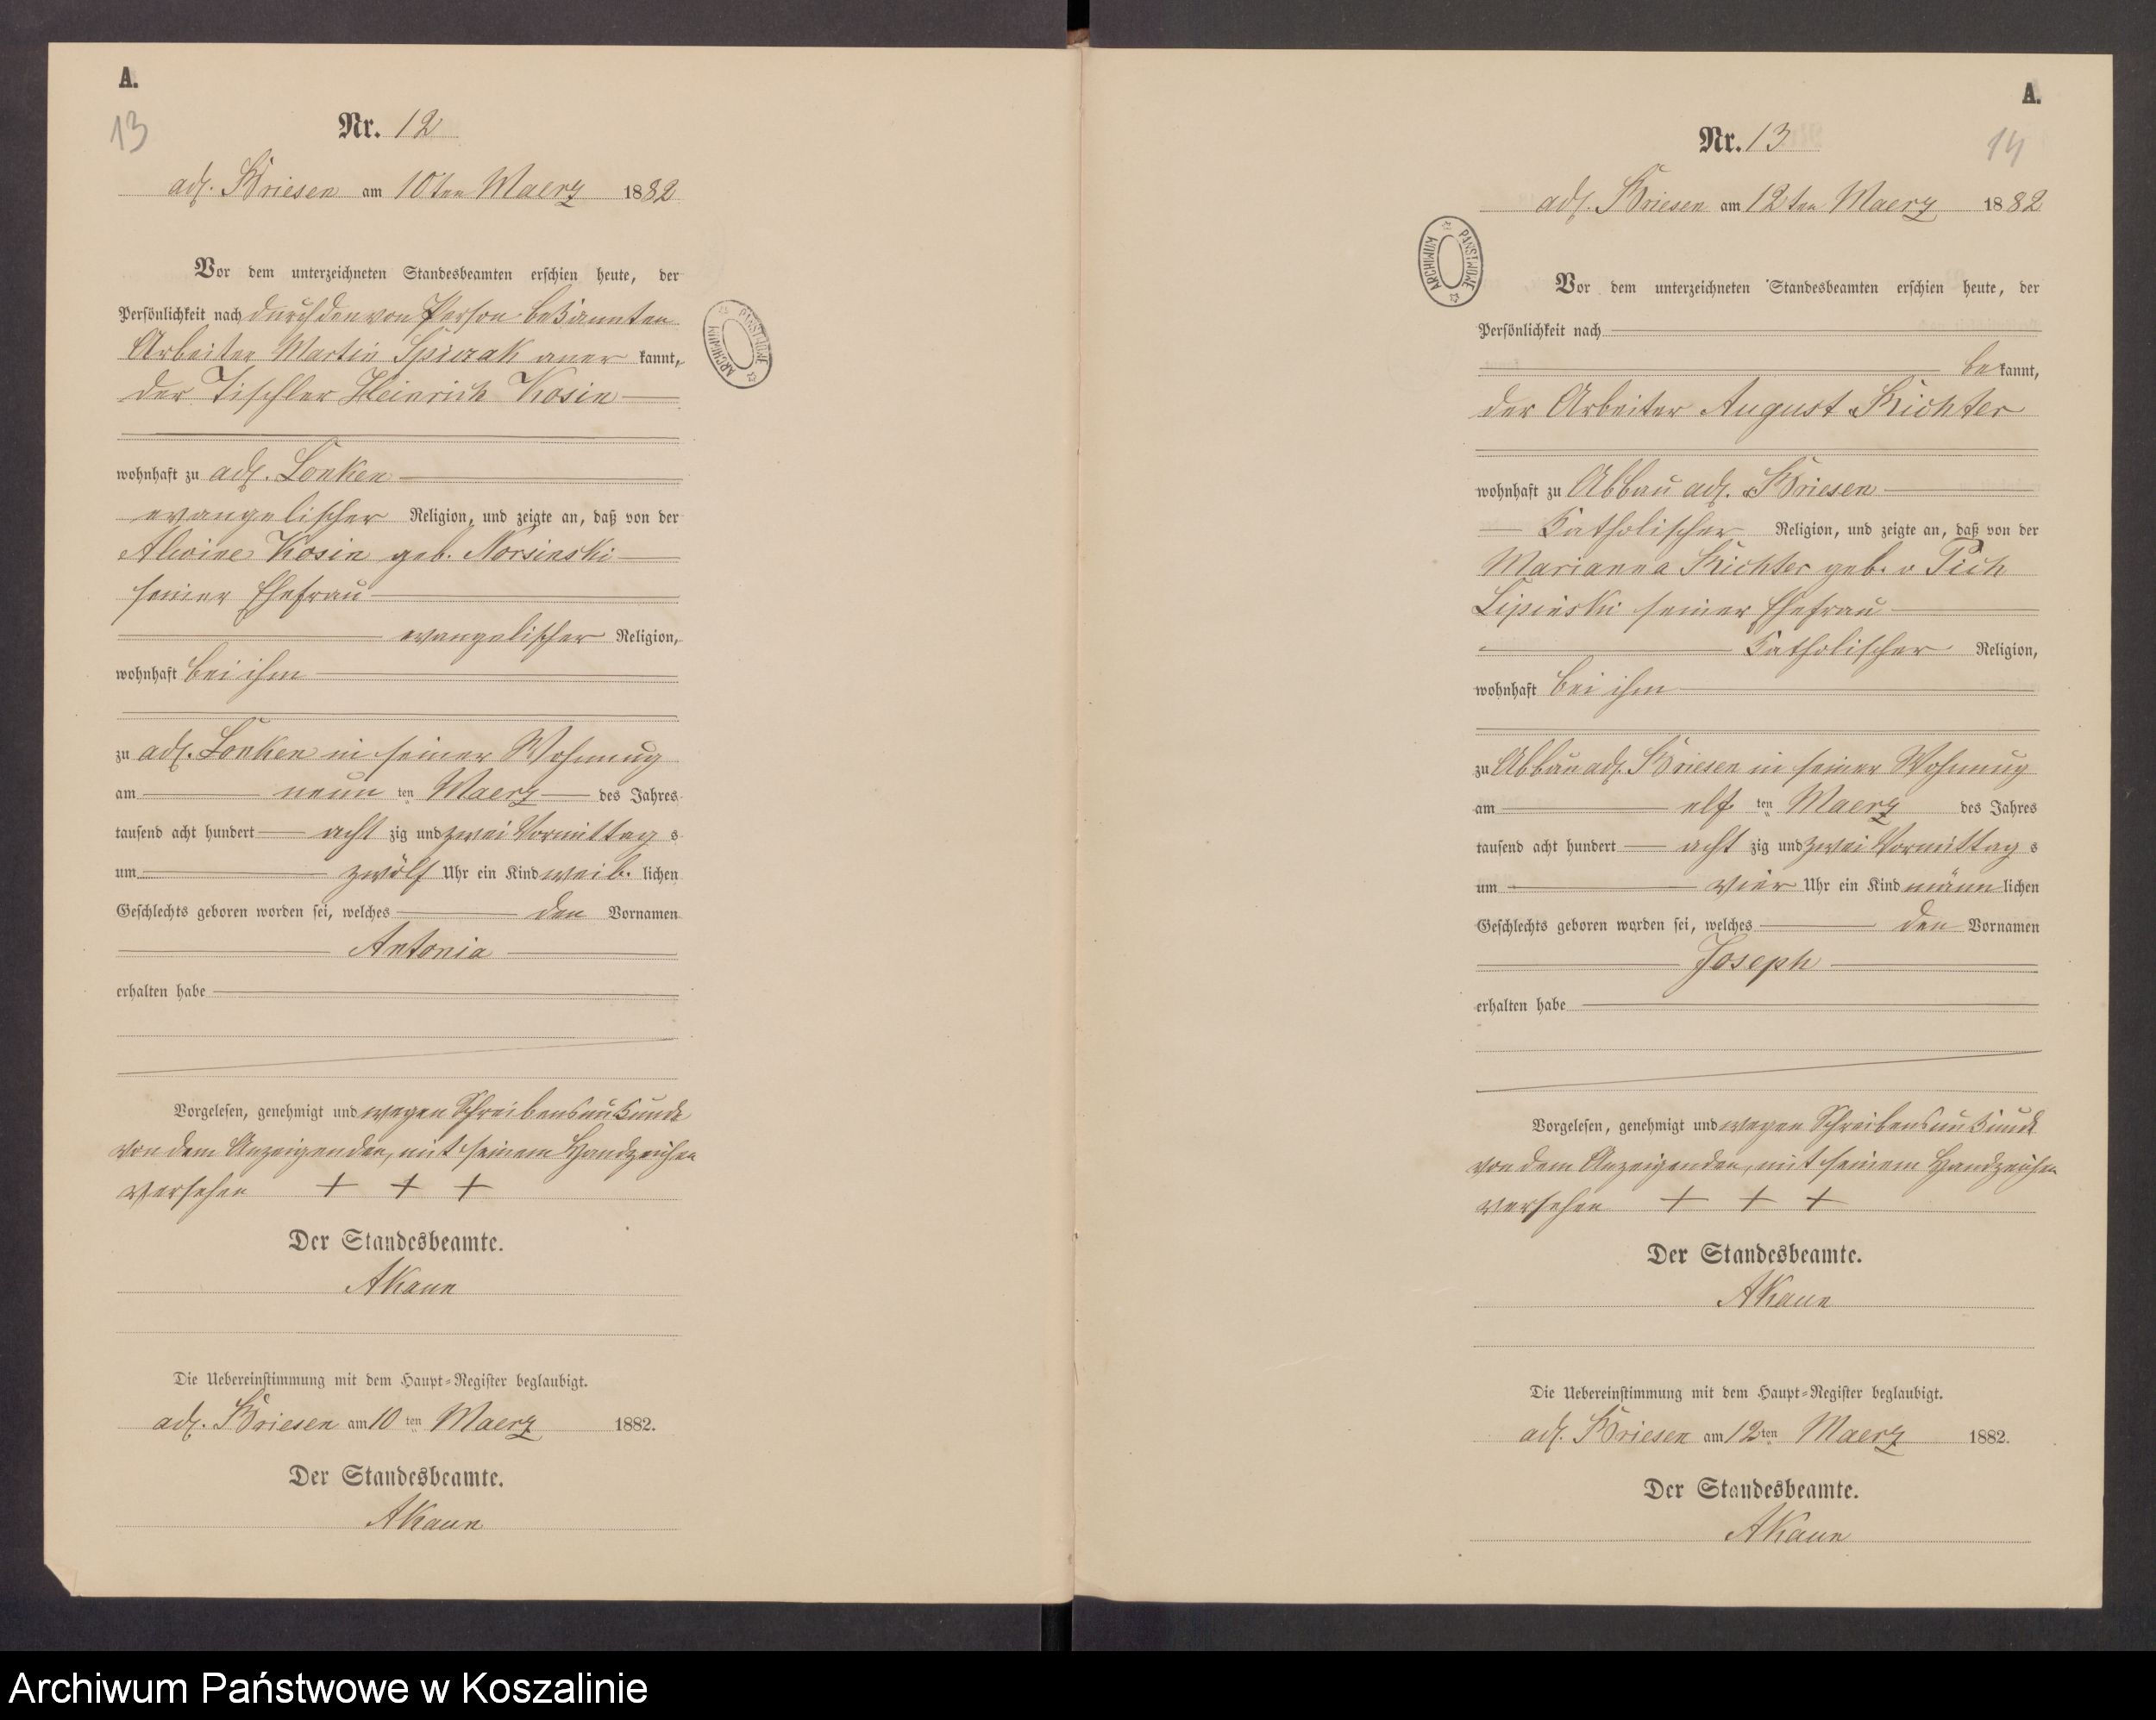 A.
13
Nr. 12
adl. Briesen am 10ten Maerz 1882
Vor dem unterzeichneten Standesbeamten erschien heute, der
Persönlichkeit nach durch den von Person bekannten
Arbeiter Martin Spiczak aner kannt,
der Tischler Heinrich Kosin
wohnhaft zu adl. Lonken
evangelischer Religion, und zeigte an, daß von der
Alwine Kosin geb. Norsinski
seiner Ehefrau
evangelischer Religion,
wohnhaft bei ihm
zu adl. Lonken in seiner Wohnung
am neun ten Maerz des Jahres
tausend acht hundert acht zig und zwei Vormittag s
um zwölf Uhr ein Kind weib. lichen
Geschlechts geboren worden sei, welches den Vornamen
Antonia
erhalten habe
Vorgelesen, genehmigt und wegen Schreibensunkunde
von dem Anzeigenden, mit seinem Handzeichen
versehen + + +
Der Standesbeamte.
AKaun
Die Uebereinstimmung mit dem Haupt=Register beglaubigt.
adl. Briesen am 10 ten Maerz 1882.
Der Standesbeamte.
AKaun
ARCHIWUM PAŃSTWOWE
A.
14
Nr. 13
adl. Briesen am 12ten Maerz 1882
ARCHIWUM PAŃSTWOWE
Vor dem unterzeichneten Standesbeamten erschien heute, der
Persönlichkeit nach
be kannt,
der Arbeiter August Richter
wohnhaft zu Abbau adl. Briesen
Katholischer Religion, und zeigte an, daß von der
Marianna Richter geb. v Pich
Lipinski seiner Ehefrau
Katholischer Religion,
wohnhaft bei ihm
zu Abbau adl. Briesen in seiner Wohnung
am elf ten Maerz des Jahres
tausend acht hundert acht zig und zwei Vormittag s
um vier Uhr ein Kind männ lichen
Geschlechts geboren worden sei, welches den Vornamen
Joseph
erhalten habe
Vorgelesen, genehmigt und wegen Schreibensunkunde
von dem Anzeigenden, mit seinem Handzeichen
versehen + + +
Der Standesbeamte.
AKaun
Die Uebereinstimmung mit dem Haupt=Register beglaubigt.
adl. Briesen am 12 ten Maerz 1882.
Der Standesbeamte.
AKaun
Archiwum Państwowe w Koszalinie